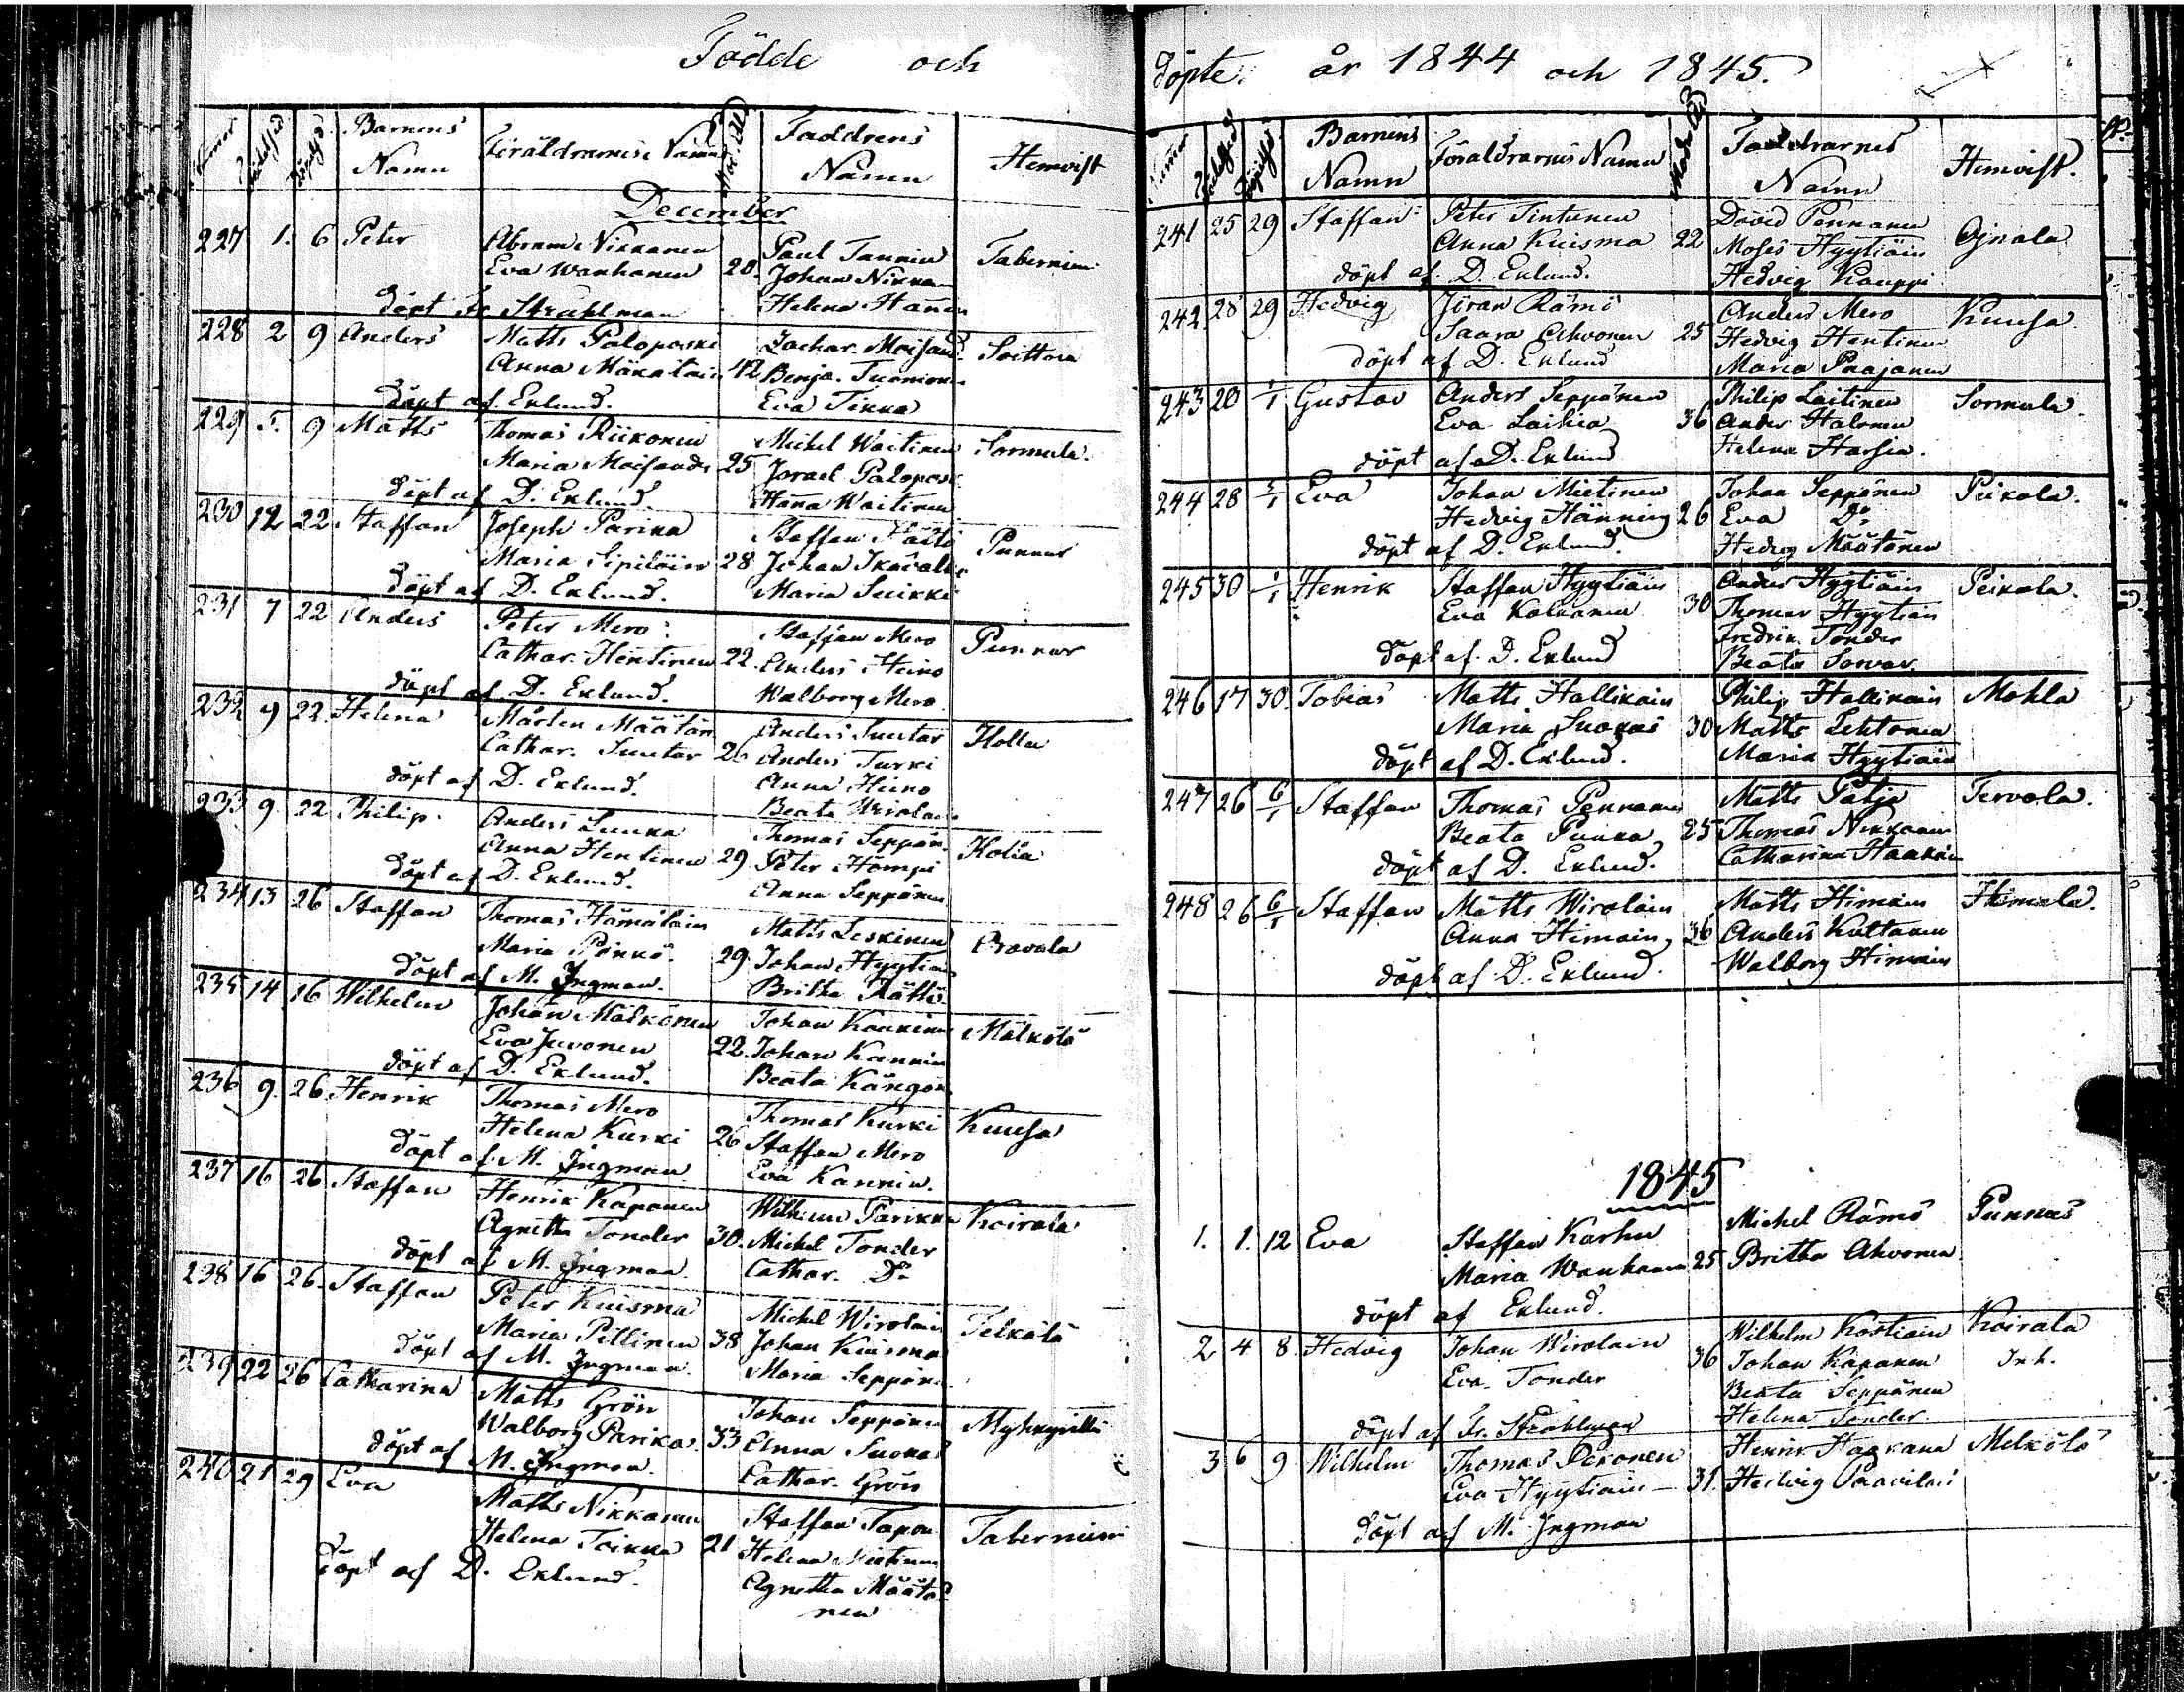 Födde och
Barnens Namn Föräldrarnes Namn Faddrens Namn Hemvist
December
227 1. 6 Peter Abram Nikkanen Paul Tannin Taberniemi
Eva Wanhanen 20. Johan Nikka
döpt Fr Strahlman Helena Hanen
228 2 9 Anders Matts Paloposki Zachar. Moisand. Soittola
Anna Mäkäläin 42 Benja.
döpt af Eklund. Eva Tikka
229 5. 9 Matts Thomas Riikonen Michel Waitinen Sormula.
Maria Moisander 25 Israel Palopos
döpt af D. Eklund. Hana Waitinen
230 12 22 Staffan Joseph Parikka Staffan Punnus
Maria Sipiläin 28 Johan
döpt af D. Eklund. Maria Suikki
231 7 22 Anders Peter Mero Staffan Mero Punnus
Cathar. Hentinen 22. Anders Heino
döpt af D. Eklund. Walborg Mero
232 9 22. Helena Mårten Määtän Anders Suutar Holla
Cathar. Suutar Anders Turki
döpt af D. Eklund. Anna Heino
Beata Wirolain
233 9. 22 Philip. Anders Luukka Thomas Seppän.
Anna Hentinen 29 Peter Hömpi
döpt af D. Eklund. Anna Seppänen
234 13 26 Staffan Thomas Hämäläin Matts Leskinen Oravala
Maria Pönkö. 29. Johan Hyytiä
döpt af M. Ingman. Britha Rättö
235 14 16 Wilhelm Johan Mälkönen Johan Kaukinen Mälkölä
Eva Juvonen 22. Johan Kannin
döpt af D. Eklund. Beata Kängon
236 9. 26 Henrik Thomas Mero Thomas Kurki Kuusa
Helena Kurki 26 Staffan Mero
döpt af M. Ingman Eva Kannin.
237 16 26 Staffan Henrik Kaponen Wilhelm Parikka Koirala
Agnetha Tonder 30. Michel Tonder
döpt af M. Ingman. Cathar. Do
238 16 26. Staffan Peter Kuisma Michel Wirolain Telkälä
Maria Pillinen 38 Johan Kuisma
döpt af M. Ingman. Maria Seppän
239 22 26 Catharina Matts Grön Johan Seppänen
Walborg Parikka. 33 Anna Suokas
döpt af M. Ingman. Cathar. Grön
240 21 29 Eva Matts Nikkanen Staffan Tapon Taberniemi
Helena Toikka 21 Helena Mietinen
döpt af D. Eklund. Agnetha Määtö-
nen
döpte. år 1844 och 1845.
Barnens Namn Föräldrarnes Namn Faddrarnes Namn Hemvist.
241 25 29 Staffan Peter Tintunen David Pennanen Ojnala
Anna Kuisma 22 Moses Hyytiäin
döpt af D. Eklund. Hedvig Kauppi
242 28 29 Hedvig Jöran Rämö Anders Mero Kuusa
Saara Ahvonen 25 Hedvig Hentinen
döpt af D. Eklund Maria Paajanen
243 20 1/1 Gustav Anders Seppänen Philip Laitinen Sormula
Eva Laihia 36 Anders Halonen
döpt af D. Eklund Helena Harsia.
244 28 5/1 Eva Johan Mietinen Johan Seppänen Peikola.
Hedvig Hänning 26 Eva Do
döpt af D. Eklund. Hedvig Määtönen
245 30 1/1 Henrik Staffan Hyytiäin Anders Hyytiäin Peikola.
Eva Kolkanen 30 Thomas Hyytiäin
Fredrik Tonder
döpt af. D. Eklund Beata Sorvar.
246 17 30. Tobias Matts Hallikain Philip Hallikain Mohla
Maria Suokas 30 Matts Lehtonen
döpt af D. Eklund. Maria Hyytiäin
247 26 6/1 Staffan Thomas Pennanen Matts Patja Tervola.
Beata Puukka 25 Thomas Nikkanen
döpt af D. Eklund. Catharina Haakain
248 26 6/1 Staffan Matts Wirolain Matts Himain Himala.
Anna Himain, 36 Anders Kultanen
döpt af D. Eklund. Walborg Himain
1845
1. 1. 12 Eva Staffan Karhu Michel Rämö Punnus
Maria Wanhanen 25 Britha Ahvonen
döpt af Eklund.
2 4 8. Hedvig Johan Wirolain Wilhelm Kostiain Koirala
Eva Tonder 36 Johan Kaponen Inh.
Beata Seppänen
döpt af Fr. Strahlman Helena Tonder.
3 6 9 Wilhelm Thomas Pekonen Henrik Hagrana Melkölä
Eva Hyytiäin 31. Hedvig Paavilai
döpt af M. Ingman